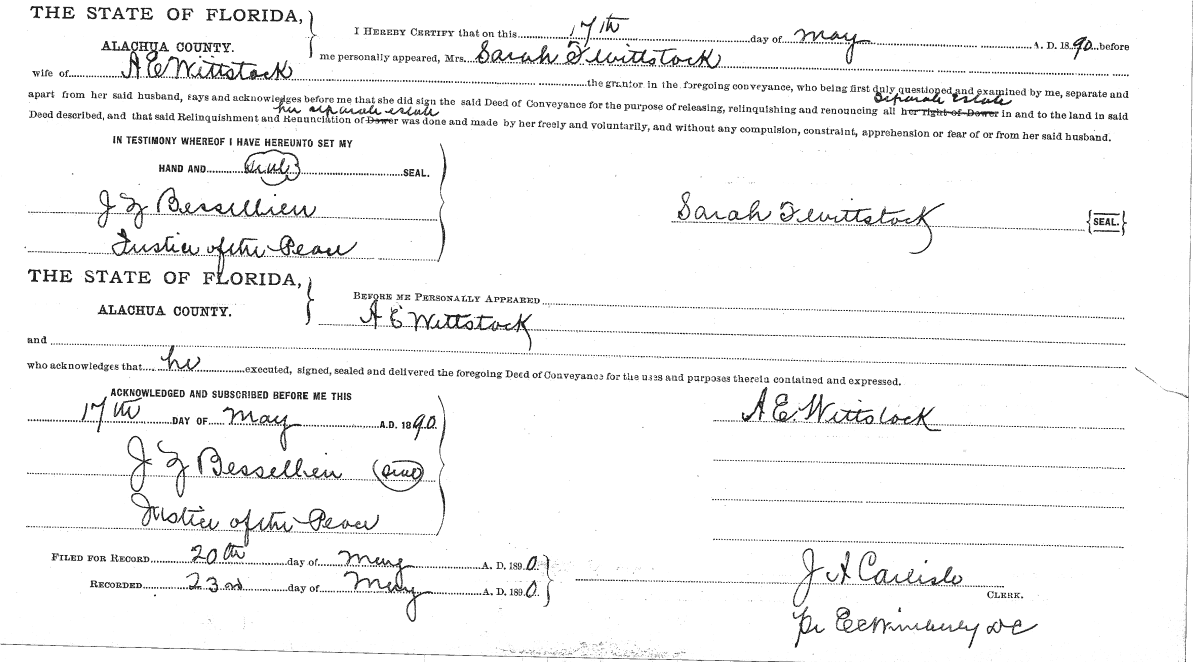 THE STATE OF FLORIDA,
ALACHUA COUNTY.
I HEREBY CERTIFY that on this 17th day of May A. D. 1890 before
me personally appeared, Mrs. Sarah F Wittstock
wife of A E Wittstock the grantor in the foregoing conveyance, who being first duly questioned and examined by me, separate and
separate estate
apart from her said husband, says and acknowledges before me that she did sign the said Deed of Conveyance for the purpose of releasing, relinquishing and renouncing all her right of Dower in and to the land in said
her separate estate
Deed described, and that said Relinquishment and Renunciation of Dower was done and made by her freely and voluntarily, and without any compulsion, constraint, apprehension or fear of or from her said husband.
IN TESTIMONY WHEREOF I HAVE HEREUNTO SET MY
HAND AND seal SEAL.
J Bessellieu
Sarah F Wittstock {SEAL.}
Justice of the Peace
THE STATE OF FLORIDA,
ALACHUA COUNTY.
BEFORE ME PERSONALLY APPEARED
A E Wittstock
and
who acknowledges that he executed, signed, sealed and delivered the foregoing Deed of Conveyance for the uses and purposes therein contained and expressed.
ACKNOWLEDGED AND SUBSCRIBED BEFORE ME THIS
17th DAY OF May A.D. 1890.
A E. Wittstock
J Bessellieu (seal)
Justice of the Peace
FILED FOR RECORD 20th day of May A. D. 1890.
RECORDED 23rd day of May A. D. 1890.
J A Carlisle
CLERK.
Pr DC